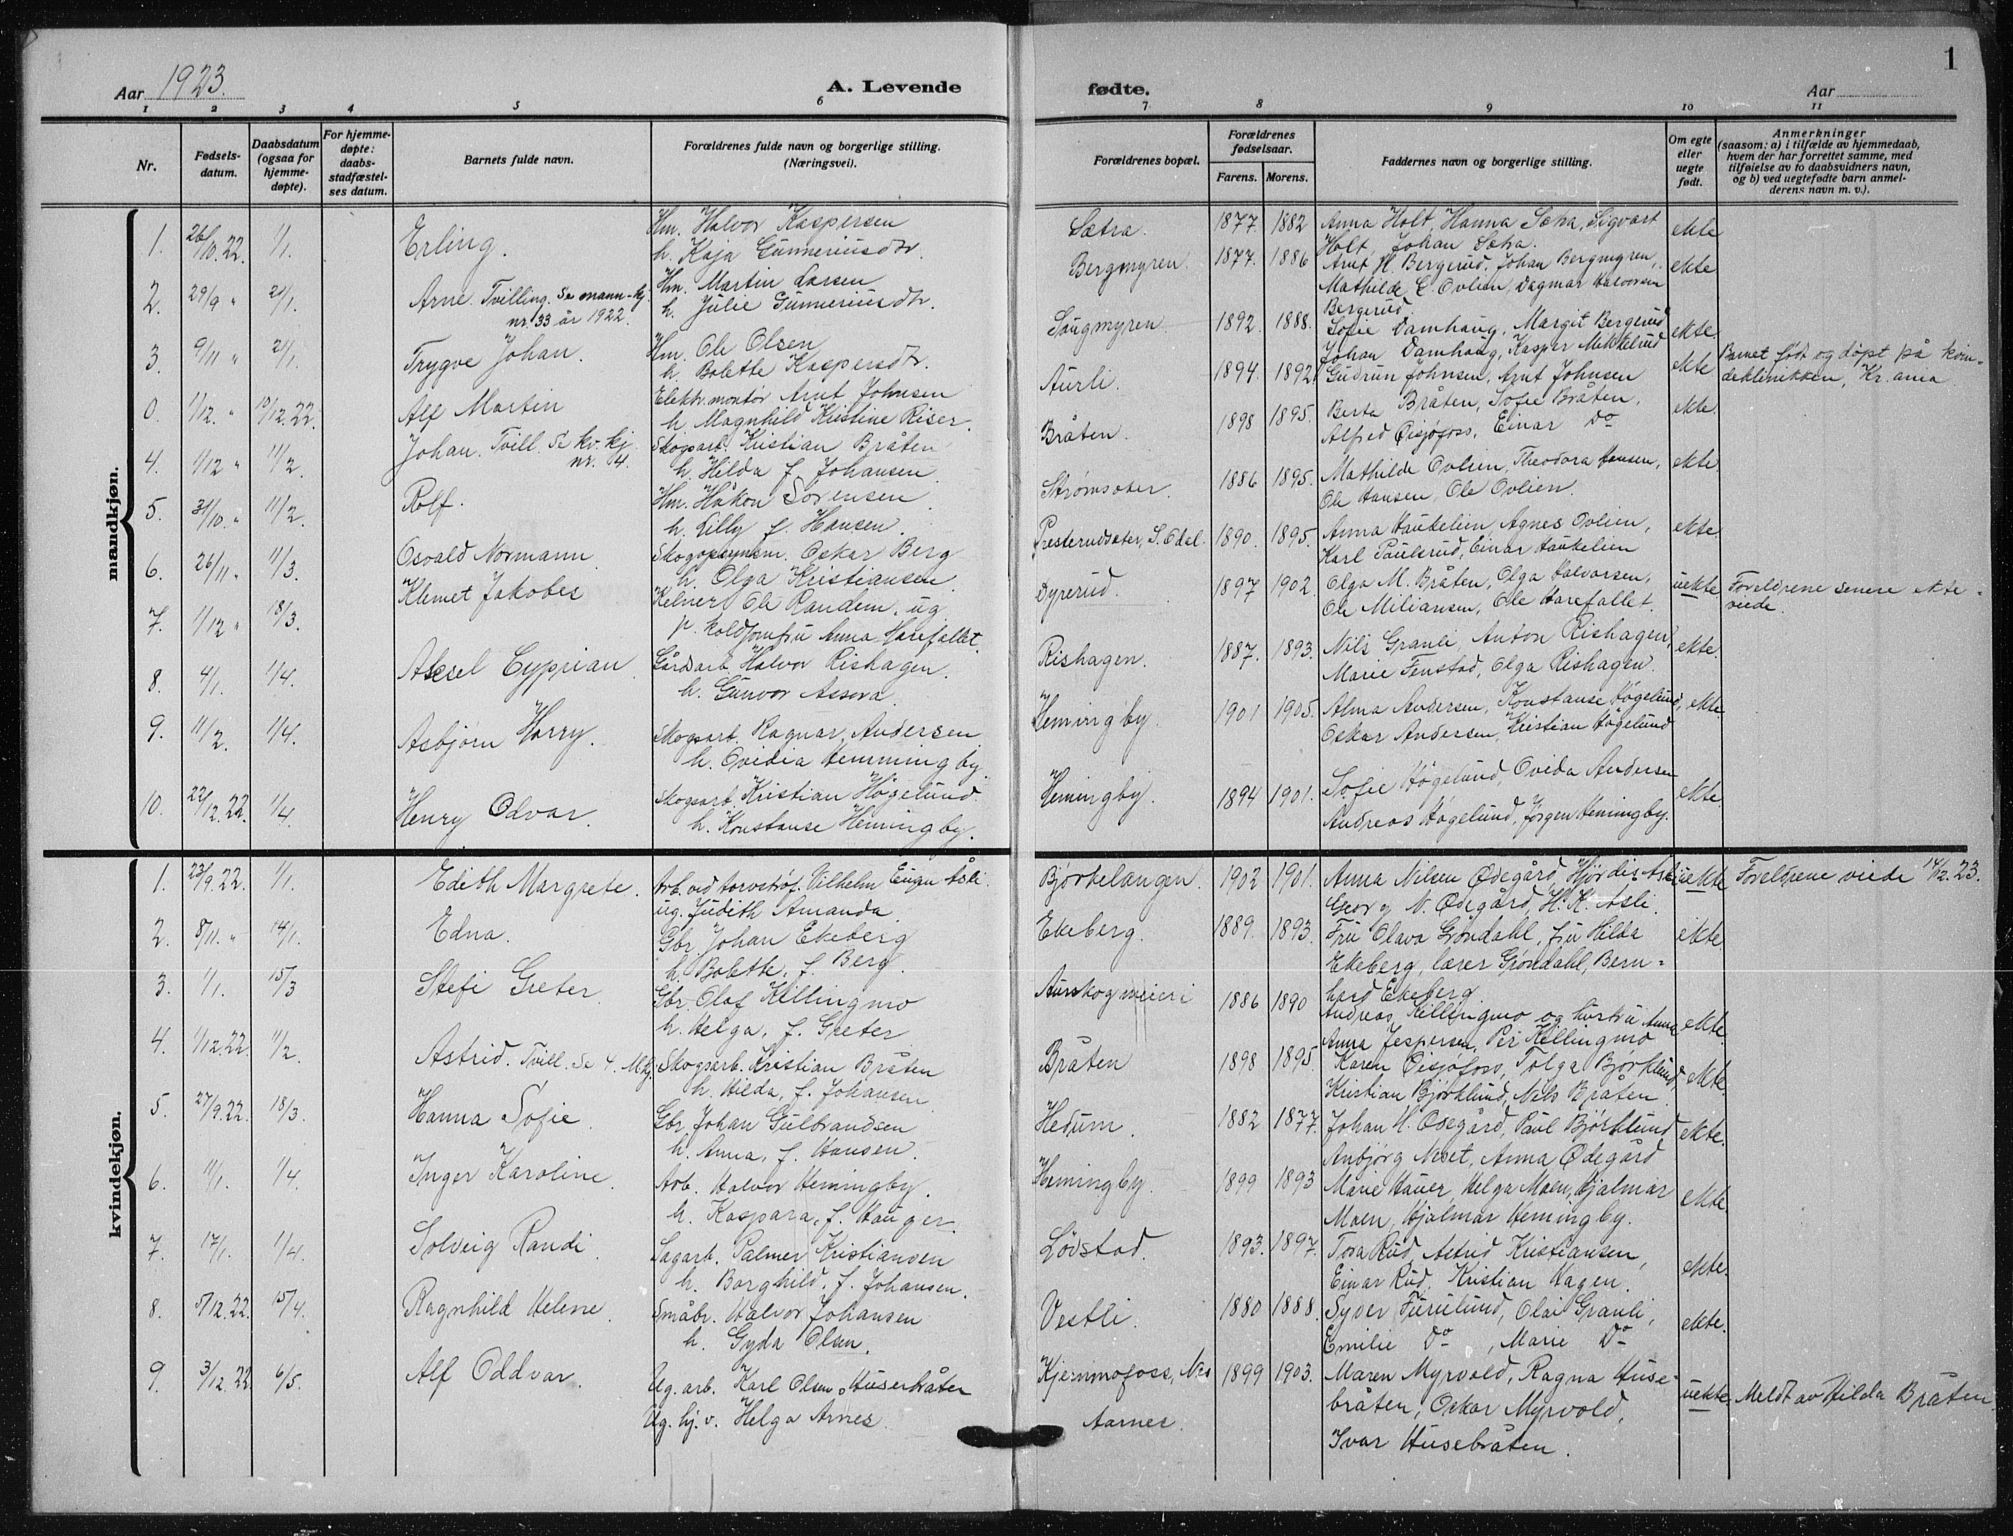 Aar 1923.
A. Levende
fødte.
Aar
1
1 2 3 4 5 6 7 8 9 10 11
Nr.
Fødsels-
datum.
Daabsdatum
(ogsaa for
hjemme-
døpte).
For hjemme-
døpte:
daabs-
stadfæstel-
ses datum.
Barnets fulde navn.
Forældrenes fulde navn og borgerlige stilling.
(Næringsvei).
Forældrenes bopæl.
Forældrenes
fødselsaar.
Farens. Morens.
Faddernes navn og borgerlige stilling.
Om egte
eller
uegte
født.
Anmerkninger
(saasom: a) i tilfælde av hjemmedaab,
hvem der har forrettet samme, med
tilføielse av to daabsvidners navn,
og b) ved uegtefødte barn anmel-
derens navn m. v.).
mandkjøn.
1. 26/10.22. 1/1. Erling. Hm. Halvor Kaspersen
h. Kaja Gunneriusdtr.
Sætra. 1877. 1882 Anna Holt, Hanna Sætra, Sigvart
Holt, Johan Sætra. ekte
2. 29/9 " 21/1. Arne. Tvilling. Se mann-kj.
nr. 33 år 1922.
Hm. Martin Larsen
h. Julie Gunneriusdtr.
Bergmyren. 1877. 1886 Arnt H. Bergerud, Johan Bergmyren,
Mathilde E. Ovlien, Dagmar Halvorsen
Bergerud. ekte
3. 9/11 " 21/1. Trygve Johan. Hm. Ole Olsen
h. Bolette Kaspersdtr.
Saugmyren. 1892. 1888. Sofie Damhaug, Margit Bergerud
Johan Damhaug, Kasper Mikkelrud ekte.
0. 1/12. " 19/12.22. Alf Martin Elektr.montør Arnt Johnsen
h. Magnhild Kristine Riser.
Aurli. 1894. 1892. Gudrun Johnsen, Arnt Johnsen ekte
Barnet født og døpt på kvin-
deklinikken, Kr.ania
4. 1/12 " 11/2. Johan. Tvill. Se kv. kj.
nr. 4.
Skogsarb. Kristian Bråten
h. Hilda f. Johansen.
Bråten. 1898 1895. Berta Bråten, Sofie Bråten,
Alfred Øisjøfoss, Einar Do ekte.
5. 31/10. " 11/2. Rolf. Hm. Håkon Sørensen
h. Lilly f. Hansen.
Strømsæter. 1886 1895. Mathilde Ovlien, Theodora Hansen,
Ole Hansen, Ole Ovlien. ekte
6. 26/11. " 11/3. Osvald Normann. Oskar Berg
h. Olga Kristiansen
Presterudsæter, S. Odal. 1890. 1895. Anna Haukelien, Agnes Ovlien,
Karl Paulsrud, Einar Haukelien ekte.
7. 1/12 " 18/3. Klemet Jakobes Kelner Ole Randem. ug
p. koldjomfru Anna Harefallet.
Dyrerud. 1897 1902. Olga M. Bråten, Olga Halvorsen,
Ole Miliansen, Ole Harefallet. uekte
Foreldrene senere ekte-
viede.
8. 4/1. 1/4. Aksel Cyprian. Gårdsarb. Halvor Rishagen.
h. Gunvor Asseva.
Rishagen. 1887. 1893. Nils Granli, Anton Rishagen,
Marie Fenstad, Olga Rishagen. ekte.
9. 11/2. 1/4. Asbjørn Harry. Skogsarb. Ragnar Andersen
h. Ovidia Hemmingby.
Hemingby. 1901 1905. Alma Andersen, Konstanse Høgelund,
Oskar Andersen, Kristian Høgelund ekte
10. 22/12.22. 1/4 Henry Odvar. Skogsarb. Kristian Høgelund.
h. Konstanse Hemingby.
Hemingby. 1894 1901. Sofie Høgelund, Ovida Andersen
Andreas Høgelund, Jørgen Hemingby. ekte.
kvindekjøn.
1. 23/9.22. 1/1. Edith Margrete. Arb. ved torvstrøf. Vilhelm Eugen Åsli.
ug. Judith Amanda.
Bjørkelangen. 1902 1901. Anna Nilsen Ødegård, Hjørdis Åsli
Georg N. Ødegård, H. K. Åsli. uekte
Foreldrene viede 14/12.23.
2. 8/11. " 14/1. Edna. Gbr. Johan Ekeberg
h. Bolette, f. Berg.
Ekeberg. 1889. 1893. Fru Olava Grøndahl, fru Hilda
Ekeberg, lærer Grøndahl, Bern-
hard Ekeberg. ekte
3. 1/1. 15/3 Stefi Greter. Gbr. Olaf Killingmo
h. Helga, f. Greter
Aurskog meieri 1886 1890 Andreas Killingmo og hustru Anna
Anna Jespersen, Per Killingmo ekte.
4. 1/12.22. 11/2. Astrid. Tvill. Se 4. Mkj. Skogsarb. Kristian Bråten
h. Hilda, f. Johansen
Bråten 1898 1895. Karen Øisjøfoss, Tolga Bjørklund
Kristian Bjørklund, Nils Bråten. ekte.
5. 27/9.22. 18/3. Hanna Sofie. Gbr. Johan Gulbrandsen
h. Anna, f. Hansen.
Hedum. 1882 1877. Johan H. Ødegård, Paul Bjørklund
Anbjørg Neset, Anna Ødegård ekte.
6. 11/1. 1/4. Inger Karoline. Arb. Halvor Hemingby.
h. Kaspara, f. Hauger.
Hemingby. 1899 1893 Marie Hauer, Helga Moen, Hjalmar
Moen, Hjalmar Hemingby. ekte.
7. 17/1. 1/4. Solveig Randi. Sagarb. Palmer Kristiansen
h. Borghild, f. Johansen.
Løvstad. 1893. 1897. Tora Rud, Astrid Kristiansen,
Einar Rud, Kristian Hagen. ekte.
8. 5/12.22. 15/4. Ragnhild Helene. Småbr. Halvor Johansen
h. Gyda Olsen.
Vestli. 1880 1888. Syver Furulund, Olai Granli,
Emilie Do, Marie Do ekte.
9. 3/12.22 6/5. Alf Oddvar. Ug. arb. Karl Olsen Husebråten
Ug. hj. v. Helga Arnes.
Kjennmofoss, Nes
Aarnes.
1899 1903. Maren Myrvold, Ragna Huse-
bråten, Oskar Myrvold,
Ivar Husebråten. uekte
Meldt av Hilda Bråten